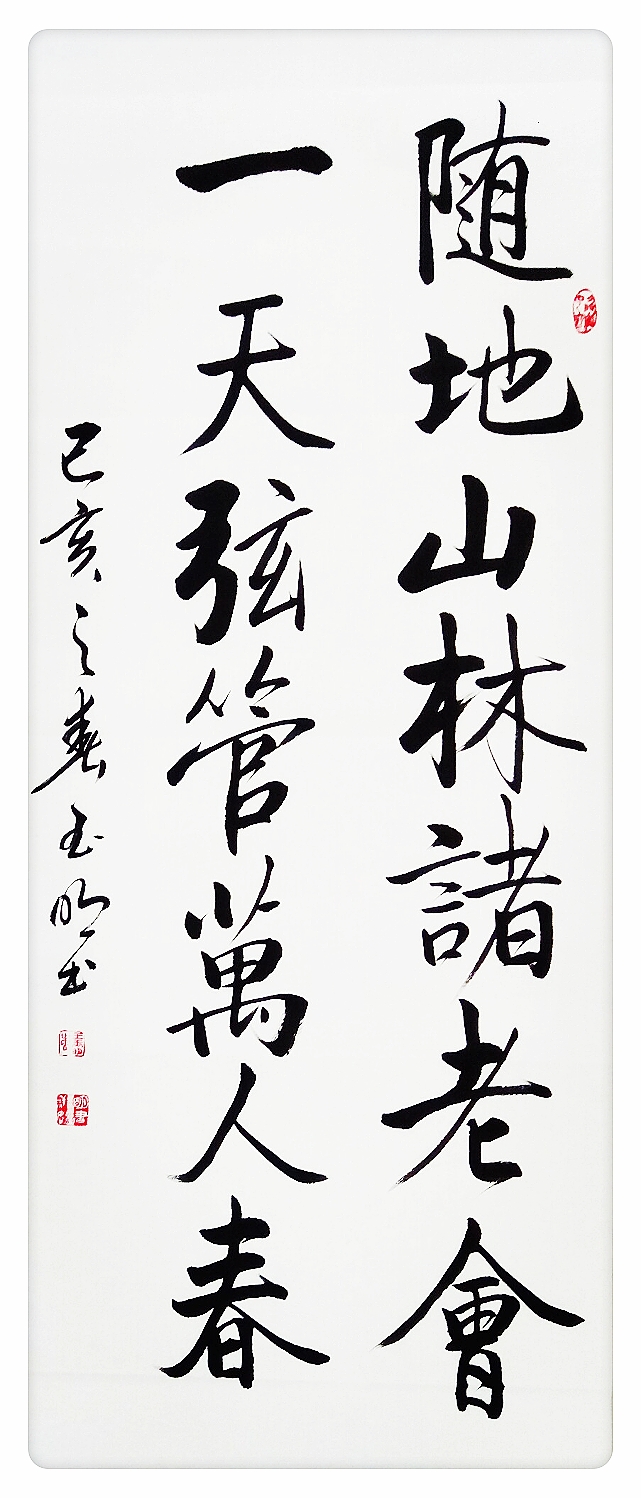 随地山林諸老會
一天弦管萬人春
己亥之春玉明书